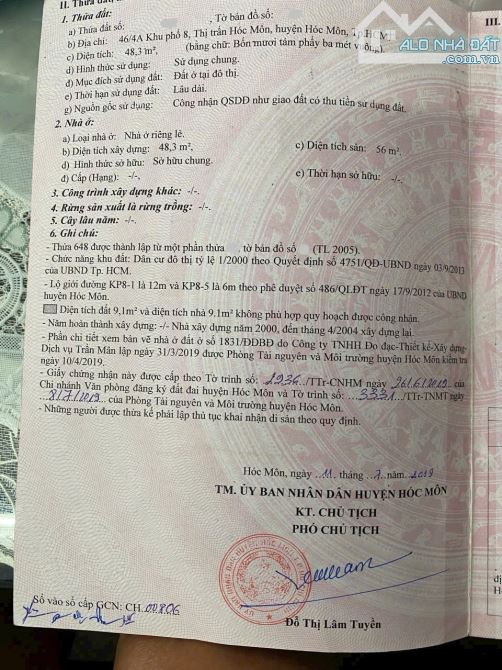 II. Thửa đất,
1. Thửa đất:
a) Thửa đất số: , Tờ bản đồ số:
b) Địa chỉ: 46/4A Khu phố 8, Thị trấn Hóc Môn, huyện Hóc Môn, Tp.HCM.
c) Diện tích: 48,3 m², (bằng chữ: Bốn mươi tám phẩy ba mét vuông),
d) Hình thức sử dụng: Sử dụng chung.
đ) Mục đích sử dụng đất: Đất ở tại đô thị.
e) Thời hạn sử dụng đất: Lâu dài.
g) Nguồn gốc sử dụng: Công nhận QSDĐ như giao đất có thu tiền sử dụng đất.
2. Nhà ở:
a) Loại nhà ở: Nhà ở riêng lẻ.
b) Diện tích xây dựng: 48,3 m², c) Diện tích sàn: 56 m².
d) Hình thức sở hữu: Sở hữu chung.
đ) Cấp (Hạng): -/-. e) Thời hạn sở hữu: -/-.
3. Công trình xây dựng khác: -/-.
4. Rừng sản xuất là rừng trồng: -/-.
5. Cây lâu năm: -/-.
6. Ghi chú:
- Thửa 648 được thành lập từ một phần thửa , tờ bản đồ số (TL 2005).
- Chức năng khu đất: Dân cư đô thị tỷ lệ 1/2000 theo Quyết định số 4751/QĐ-UBND ngày 03/9/2013
của UBND Tp. HCM.
- Lộ giới đường KP8-1 là 12m và KP8-5 là 6m theo phê duyệt số 486/QLĐT ngày 17/9/2012 của UBND
huyện Hóc Môn.
Diện tích đất 9,1m² và diện tích nhà 9,1m² không phù hợp quy hoạch được công nhận.
- Năm hoàn thành xây dựng: -/- Nhà xây dựng năm 2000, đến tháng 4/2004 xây dựng lại.
- Phần chi tiết xem bản vẽ nhà ở đất ở số 1831/ĐĐBĐ do Công ty TNHH Đo đạc-Thiết kế-Xây dựng-
Dịch vụ Trần Mân lập ngày 31/3/2019 được Phòng Tài nguyên và Môi trường huyện Hóc Môn kiểm tra
ngày 10/4/2019.
- Giấy chứng nhận này được cấp theo Tờ trình số: 2936/TTr-CNHM ngày 26/6/2019 của
Chi nhánh Văn phòng đăng ký đất đai huyện Hóc Môn và Tờ trình số: 3331/TTr-TNMT ngày
8/7/2019 của Phòng Tài nguyên và Môi trường huyện Hóc Môn.
- Những người được thừa kế phải lập thủ tục khai nhận di sản theo quy định.
Hóc Môn, ngày 11 tháng 7 năm 2019
TM. ỦY BAN NHÂN DÂN HUYỆN HÓC MÔN
KT. CHỦ TỊCH
PHÓ CHỦ TỊCH
Số vào sổ cấp GCN: CH 00806
Đỗ Thị Lâm Tuyền
ALO NHÀ ĐẤT
.com.vn
III.